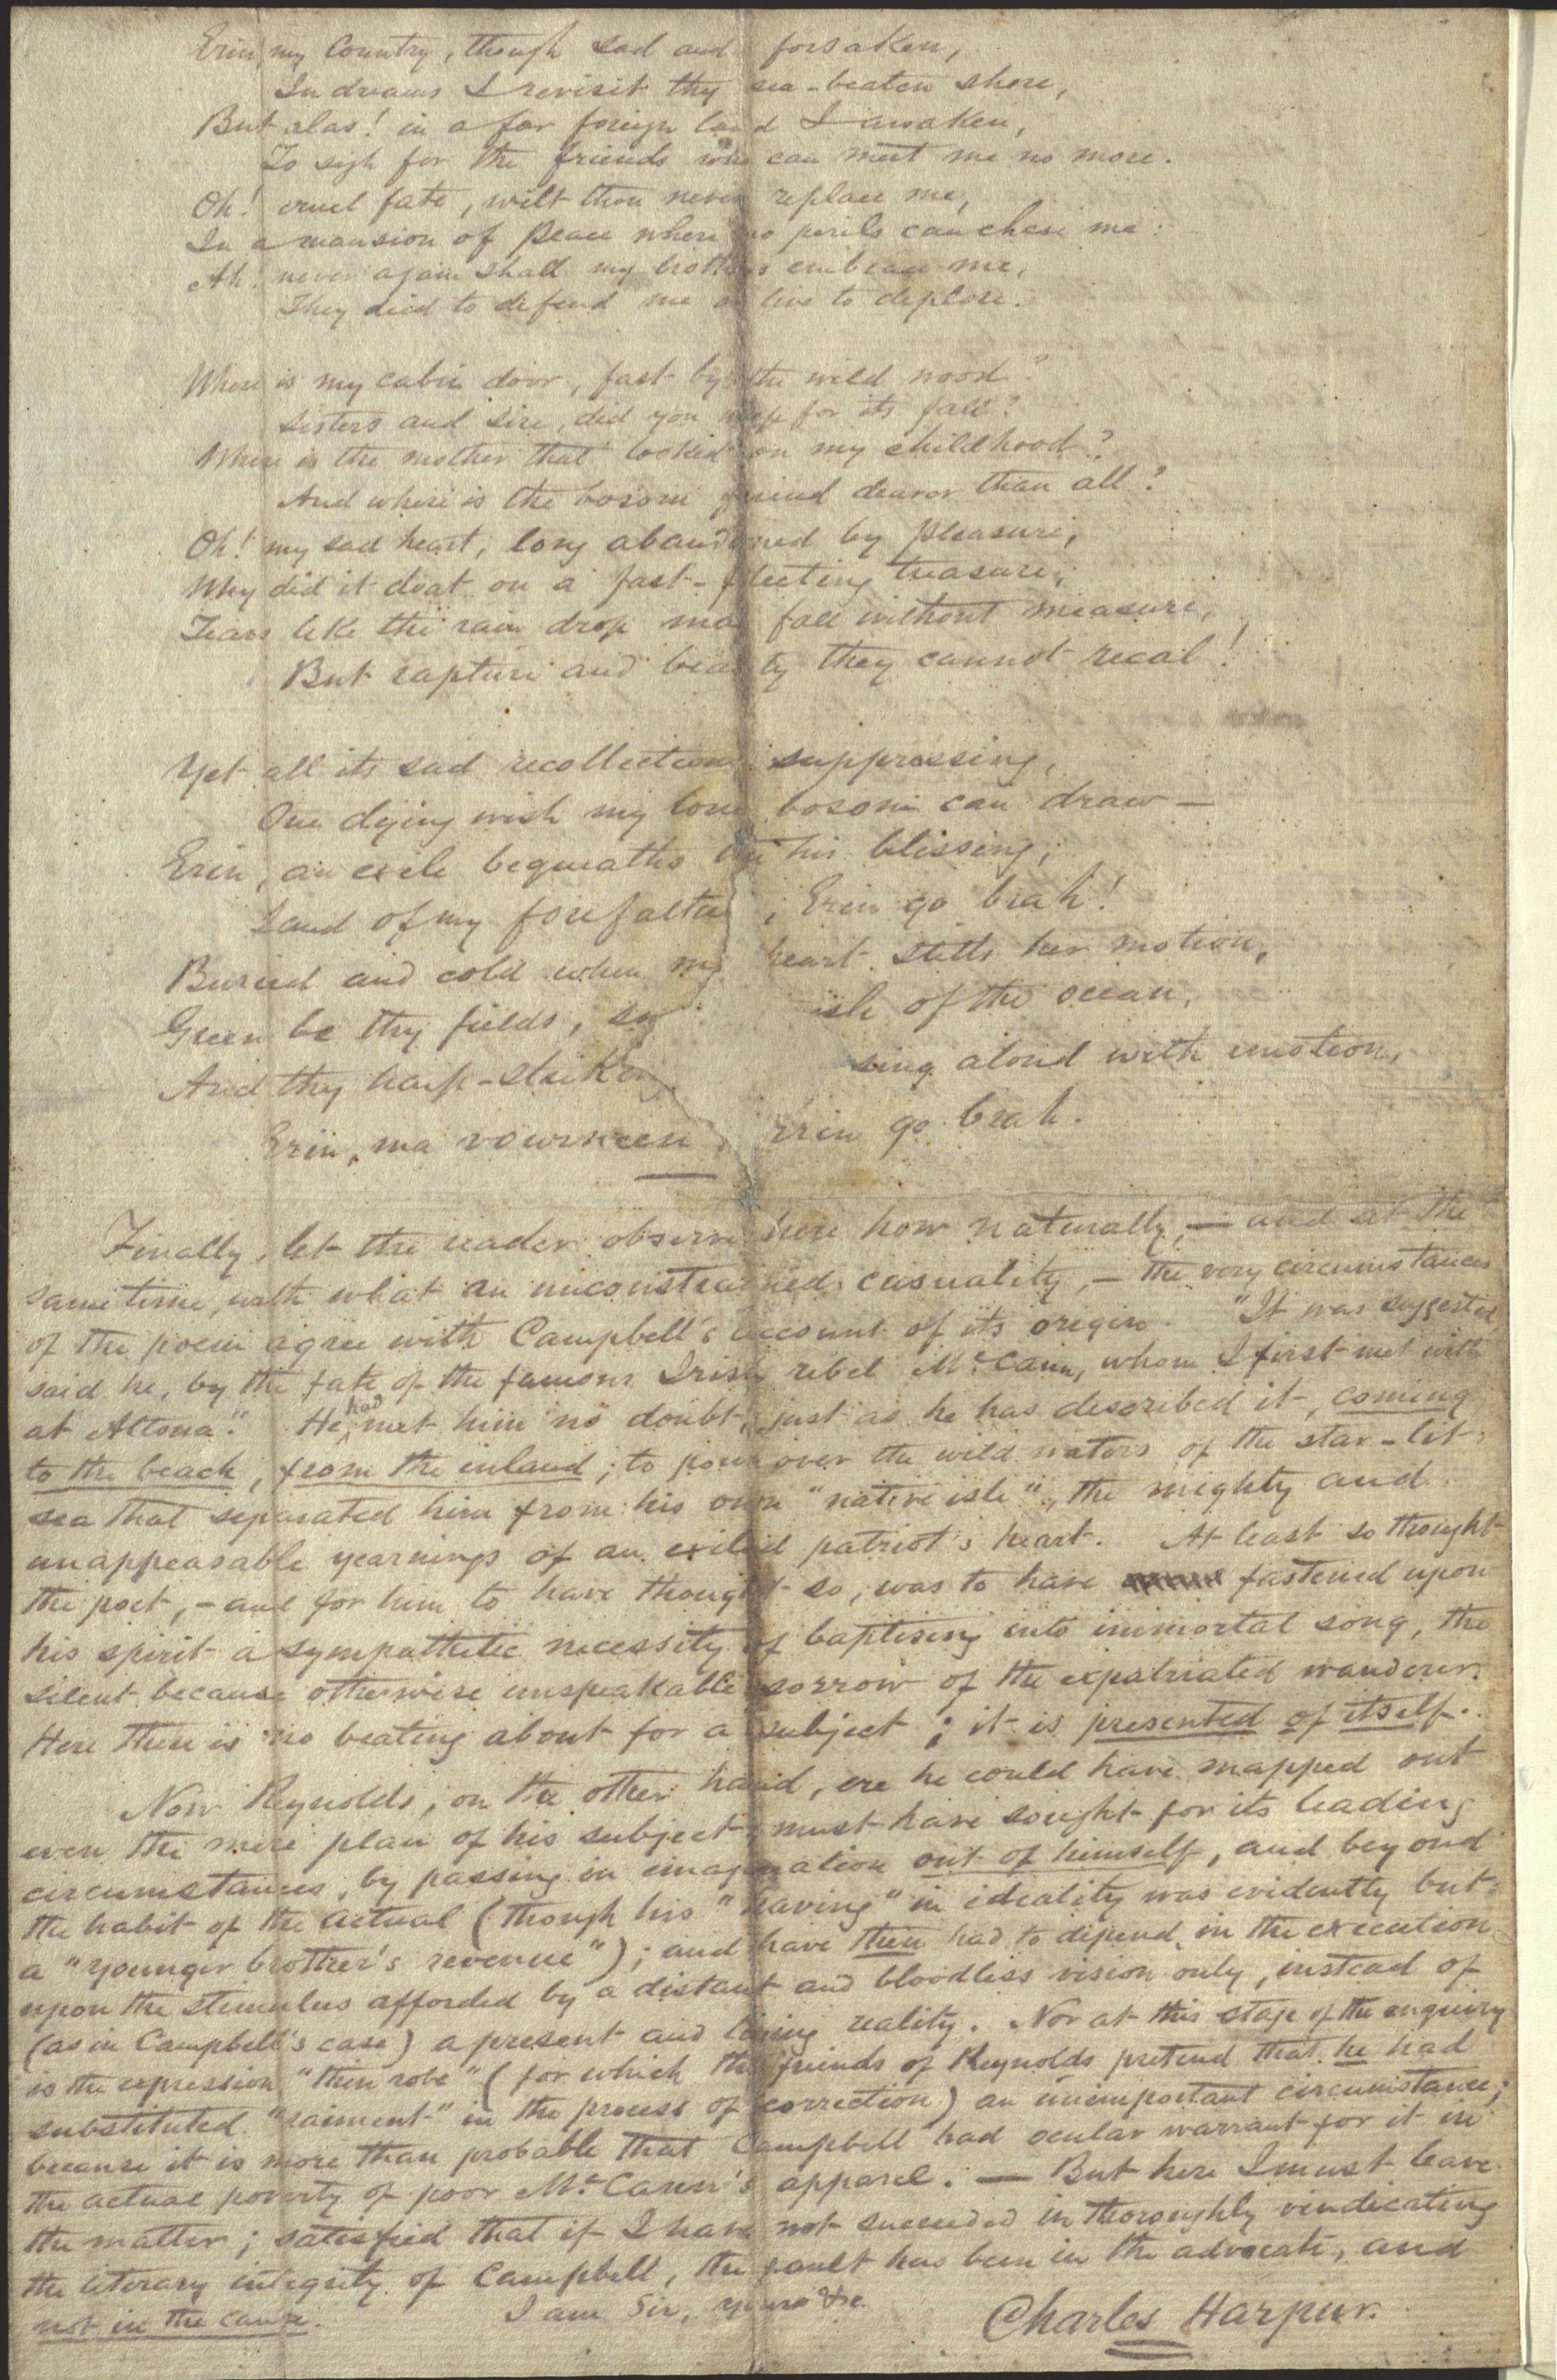 Erin, my Country, though sad and forsaken,
In dreams I revisit thy sea-beaten shore,
But alas! in a far foreign land I awaken,
To sigh for the friends who can meet me no more.
Oh! cruel fate, wilt thou never replace me,
In a mansion of peace where no perils can chase me:
Ah! never again shall my brothers embrace me,
They died to defend me or live to deplore.
Where is my cabin door, fast by the wild wood?
Sisters and sire, did you weep for its fall?
Where is the mother that looked on my childhood?
And where is the bosom friend dearer than all?
Oh! my sad heart, long abandoned by pleasure,
Why did it doat on a fast-fleeting treasure,
Tears like the rain drop may fall without measure,
But rapture and beauty they cannot recal!
Yet all its sad recollections suppressing,
One dying wish my lone bosom can draw —
Erin, an exile bequeaths his blessing;
Land of my forefather, Erin go brah!
Buried and cold when my heart stills her motion,
Green be thy fields, isle of the ocean,
And thy harp-strik sing aloud with emotion,
Erin, ma vourneen, Erin go brah.
Finally, let the reader observe here how naturally, — and at the
same time, with what an unconstrained casuality, — the very circumstances
of the poem agree with Campbell's account of its origin. "It was suggested,
said he, by the fate of the famous Irish rebel Mc. Cann, whom I first met with
at Altona." He had met him no doubt, just as he has described it, coming
to the beach, from the inland; to pour over the wild waters of the star-lit
sea that separated him from his own "native isle", the mighty and
unappeasable yearnings of an exiled patriot's heart. At least so thought
the poet, — and for him to have thought so, was to have fastened upon
his spirit a sympathetic necessity of baptising into immortal song, the
silent because otherwise unspeakable sorrow of the expatriated wanderer.
Here then is no beating about for a subject; it is presented of itself.
Now Reynolds, on the other hand, ere he could have mapped out
even the mere plan of his subject, must have sought for its leading
circumstances, by passing in imagination out of himself, and beyond
the habit of the actual (though his "having" in ideality was evidently but
a "younger brother's revenue"); and have then had to depend, in the execution
upon the stimulus afforded by a distant and bloodless vision only, instead of
(as in Campbell's case) a present and living reality. Nor at this stage of the enquiry
is the expression "thin robe" (for which the friends of Reynolds pretend that he had
substituted "raiment" in the process of correction) an unimportant circumstance;
because it is more than probable that Campbell had ocular warrant for it in
the actual poverty of poor Mc. Cann's apparel. — But here I must leave
the matter; satisfied that if I have not succeeded in thoroughly vindicating
the literary integrity of Campbell, the fault has been in the advocate, and
not in the cause. I am Sir, yours &c.
Charles Harpur.